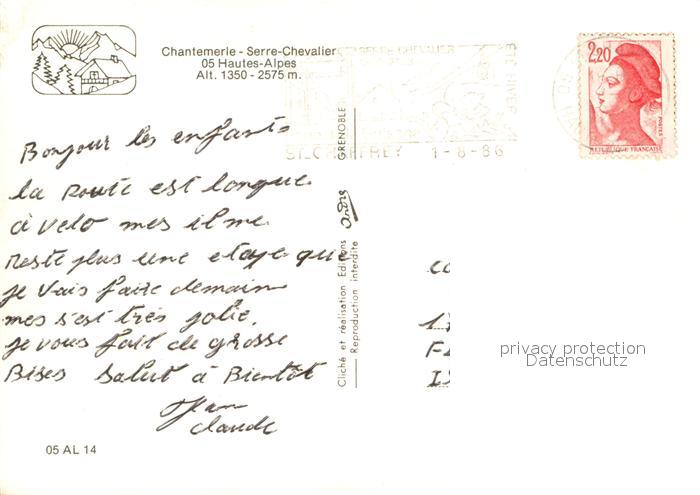 Chantemerle - Serre-Chevalier
05 Hautes-Alpes
Alt. 1350 - 2575 m.
SERRE CHEVALIER
ETE HIVER
ST.CHAFFREY 1-8-86
2,20
POSTES
REPUBLIQUE FRANÇAISE
Bonjour les enfants
la Route est longue
à velo mes il me
reste plus une etape que
je vais faire demain
mes s'est très jolie.
je vous fait de grosse
Bises Salut à Bientôt
Jean
Claude
GRENOBLE
André
Cliché et réalisation Editions
Reproduction interdite
privacy protection
Datenschutz
05 AL 14